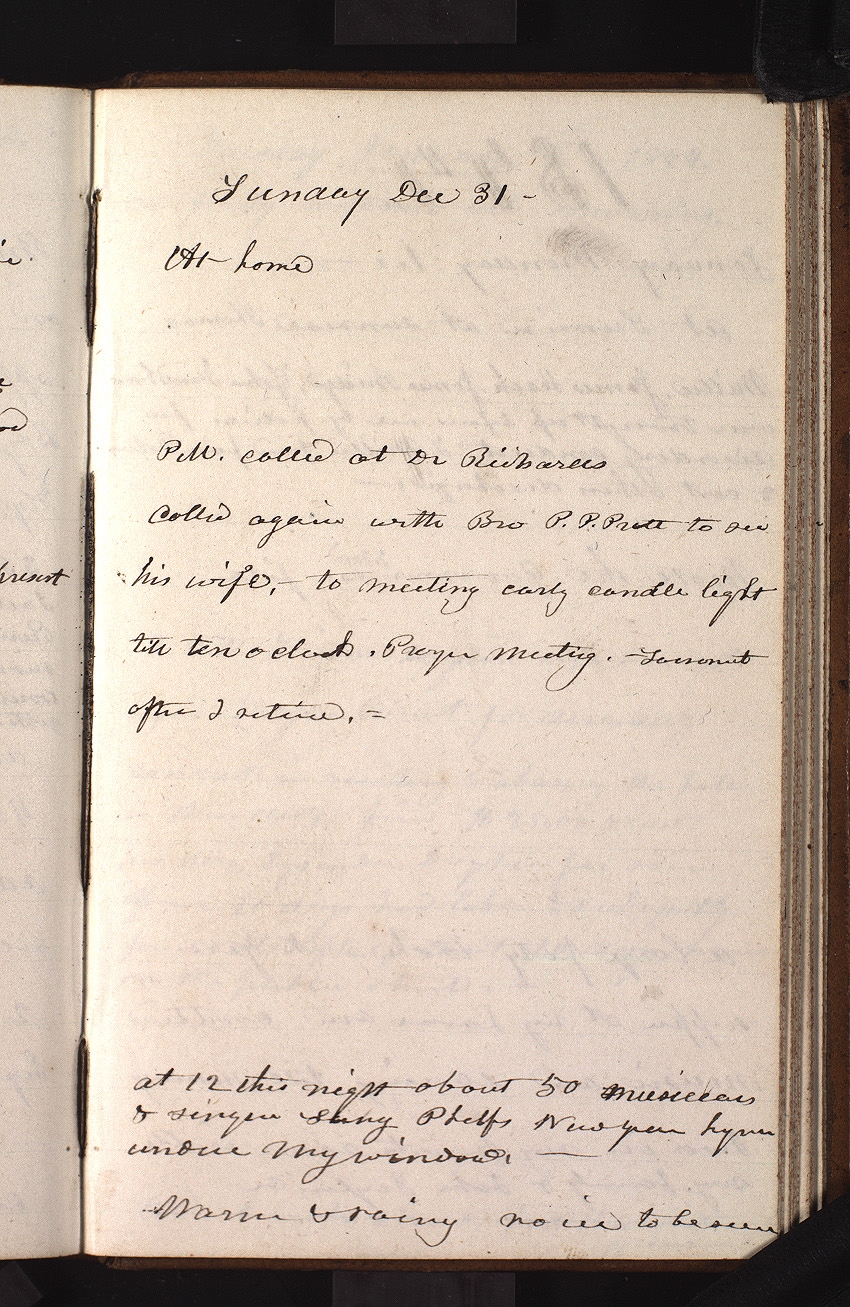 Sunday Dec 31 -
At home
P.M. called at Dr Richards
Called again with Bro P. P. Pratt to see
his wife, - to meeting early candle light
till ten o clock . Prayer Meeting . -
after I retired. =
at 12 this night about 50 musicians
& singers sang Phelps New year hymn
under My window. —
Warm & rainy no ice to be seen
present